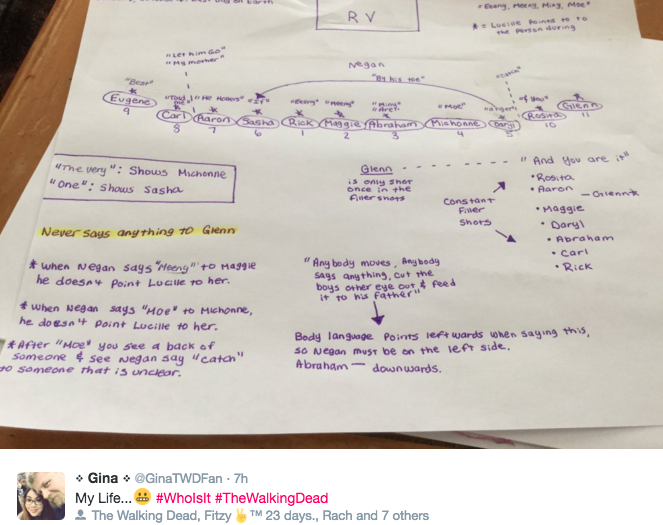 on Earth
RV
"Eeany, Meeny, Miny, Moe"
* = Lucille Pointed to
the person during
"Let him Go"
"My mother"
Negan
"By his toe"
"Catch"
"Best" "Told me" "He Hollers" "If" "Eeany" "Meeny" "Miny" "Moe" "A tiger" "of you"
Eugene Carl Aaron Sasha Rick Maggie Abraham Michonne Daryl Rosita Glenn
9 8 7 6 1 2 3 4 5 10 11
"The very": Shows Michonne
"One": Shows Sasha
Never says anything to Glenn
* When Negan says "Meeny" to Maggie
he doesn't point Lucille to her.
* When Negan says "Moe" to Michonne,
he doesn't point Lucille to her.
* After "Moe" you see a back of
someone & see Negan say "catch"
to someone that is unclear.
Glenn
is only shot
once in the
filler shots
Constant
Filler
Shots
"And You are it"
• Rosita
• Aaron
— Glenn*
• Maggie
• Daryl
• Abraham
• Carl
• Rick
"Anybody moves, Anybody
says anything, cut the
boys other eye out & feed
it to his father"
Body language points leftwards when saying this,
so Negan must be on the left side.
Abraham — downwards.
Gina @GinaTWDFan · 7h
My Life...😬 #WhoIsIt #TheWalkingDead
The Walking Dead, Fitzy✌️™ 23 days., Rach and 7 others